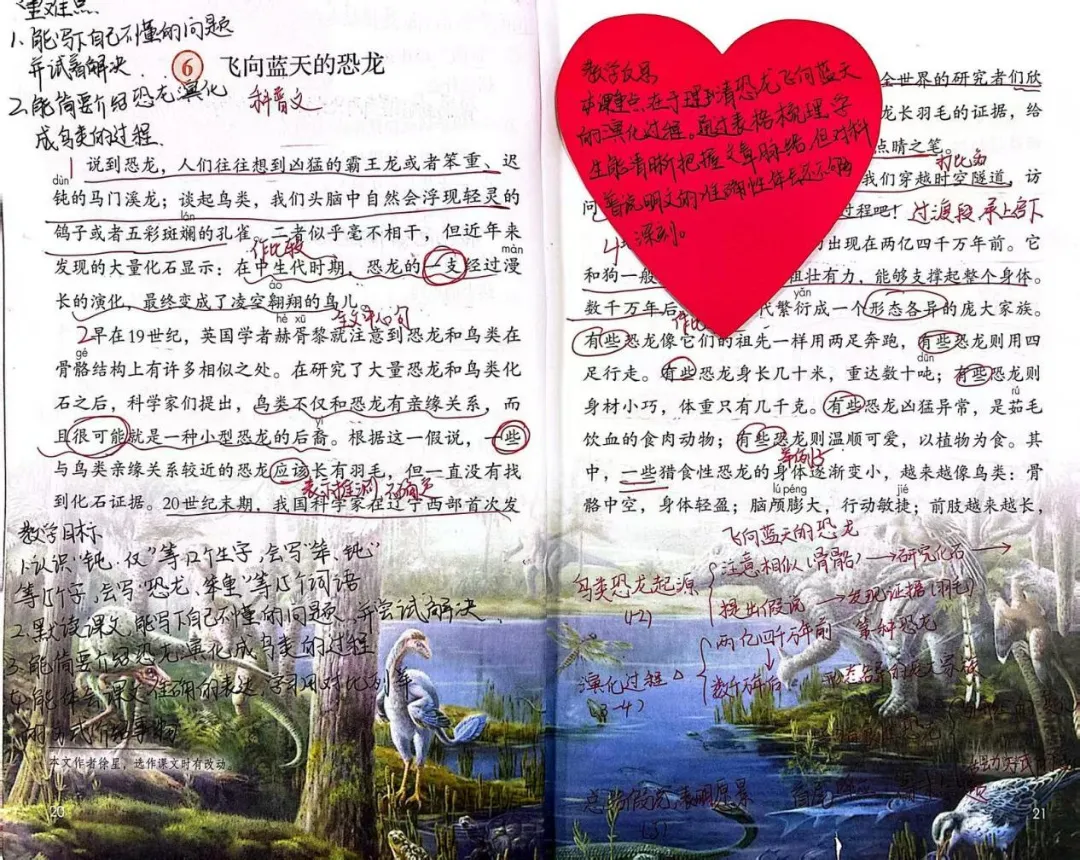 重难点
1.能写下自己不懂的问题
并试着解决.
2.能简要介绍恐龙演化
成鸟类的过程.
6 飞向蓝天的恐龙
科普文
1 说到恐龙，人们往往想到凶猛的霸王龙或者笨重、迟
dùn
钝的马门溪龙；谈起鸟类，我们头脑中自然会浮现轻灵的
lán
鸽子或者五彩斑斓的孔雀。二者似乎毫不相干，但近年来
作比较
màn
发现的大量化石显示：在中生代时期，恐龙的一支经过漫
áo
长的演化，最终变成了凌空翱翔的鸟儿。
hè xū
2早在19世纪，英国学者赫胥黎就注意到恐龙和鸟类在
gé
骨骼结构上有许多相似之处。在研究了大量恐龙和鸟类化
石之后，科学家们提出，鸟类不仅和恐龙有亲缘关系，而
yì
且很可能就是一种小型恐龙的后裔。根据这一假说，一些
与鸟类亲缘关系较近的恐龙应该长有羽毛，但一直没有找
表示推测 不确定
到化石证据。20世纪末期，我国科学家在辽宁西部首次发
教学目标
1.认识“钝、仅”等12个生字，会写“笨、钝”
等15个字，会写“恐龙、笨重”等15个词语
2.默读课文，能写下自己不懂的问题，并尝试解决.
3.能简要介绍恐龙演化成鸟类的过程
4.能体会课文准确的表达，学习用对比、列举
的方式介绍事物
本文作者徐星，选作课文时有改动。
20
教学反思
本课重点在于理清恐龙飞向蓝天
的演化过程。通过表格梳理，学
生能清晰把握文章脉络，但对科
普说明文的准确性体会还不够
深刻。
全世界的研究者们欣
龙长羽毛的证据，给
点睛之笔。
打比方
我们穿越时空隧道，访
问
过程吧！
过渡段 承上启下
4
出现在两亿四千万年前。它
和狗一般
粗壮有力，能够支撑起整个身体。
yǎn
数千万年后
代繁衍成一个形态各异的庞大家族。
有些恐龙像它们的祖先一样用两足奔跑，有些恐龙则用四
dūn
足行走。有些恐龙身长几十米，重达数十吨；有些恐龙则
rú
身材小巧，体重只有几千克。有些恐龙凶猛异常，是茹毛
饮血的食肉动物；有些恐龙则温顺可爱，以植物为食。其
举例子
中，一些猎食性恐龙的身体逐渐变小，越来越像鸟类：骨
lú péng
jié
骼中空，身体轻盈；脑颅膨大，行动敏捷；前肢越来越长，
飞向蓝天的恐龙
鸟类恐龙起源
(1-2)
注意相似(骨骼)→研究化石→
提出假说→发现证据(羽毛)
演化过程△
(3-4)
两亿四千万年前 第一种恐龙
数千万年后 形态各异的庞大家族
总结假说，表明愿景
(5)
21